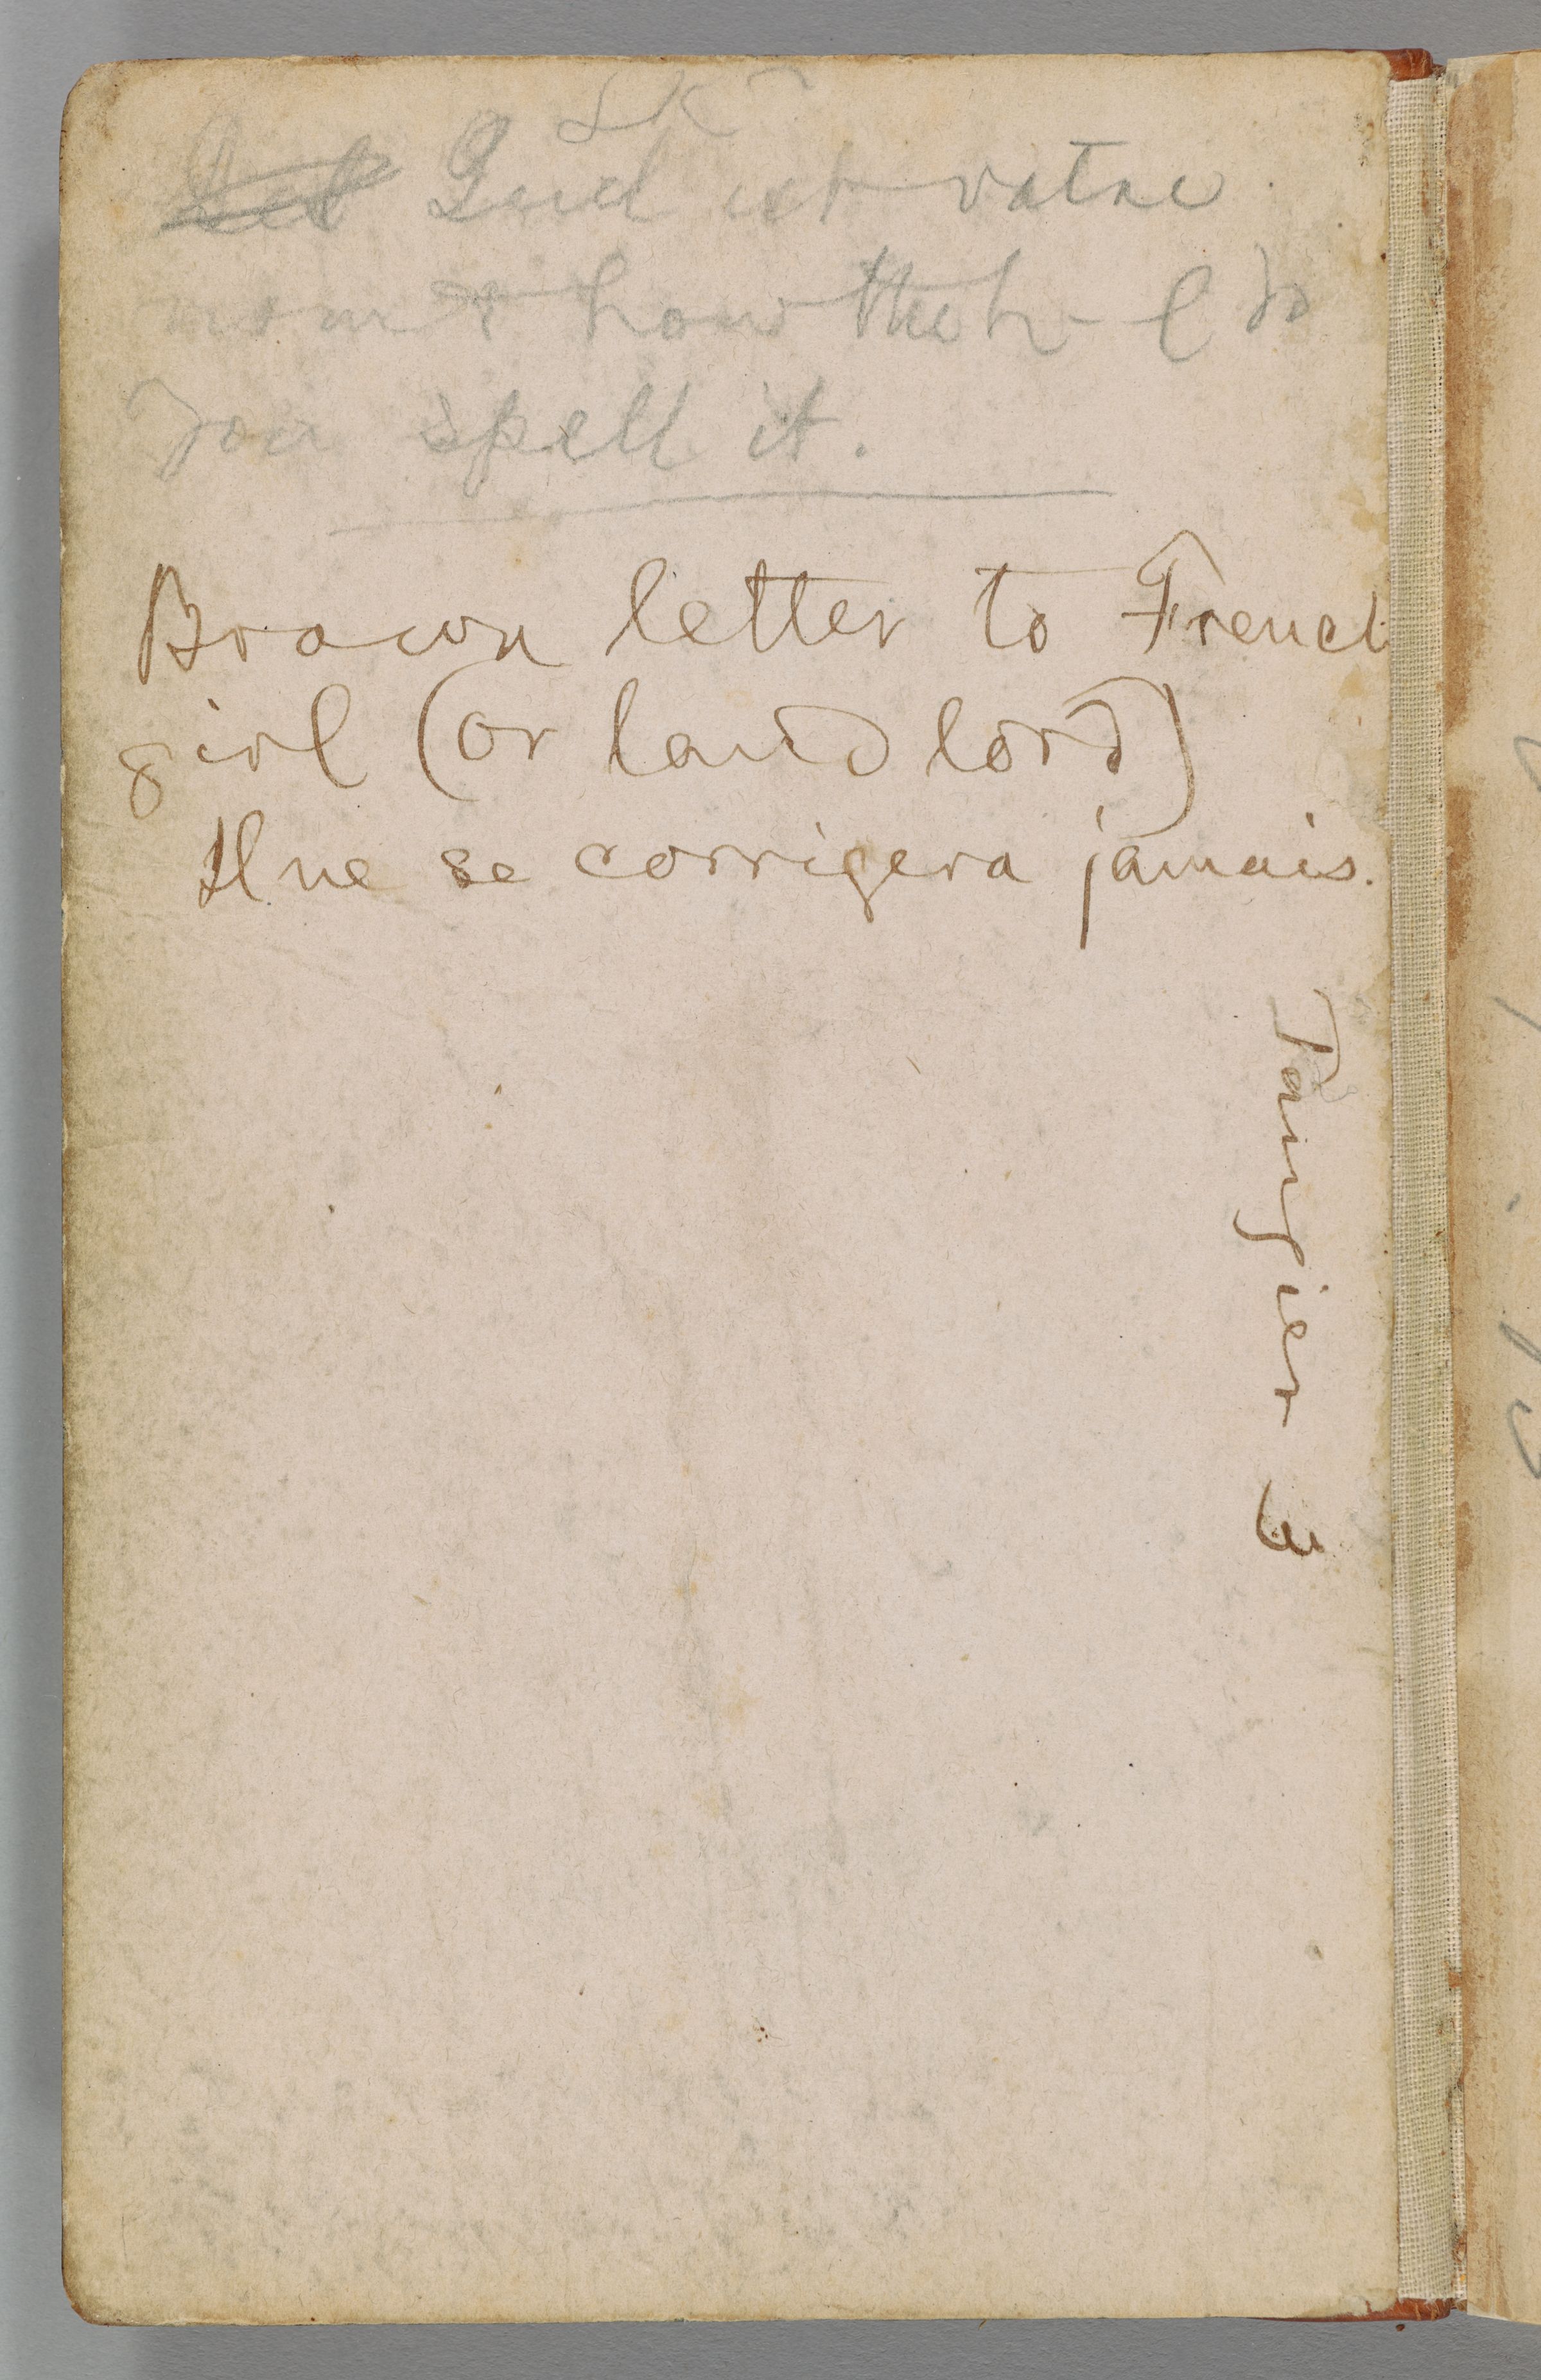 Quel est votre
nom & how the h–l do
you spell it.
Brown letter to French
girl (or landlord)
Il ne se corrigera jamais.
Tangier